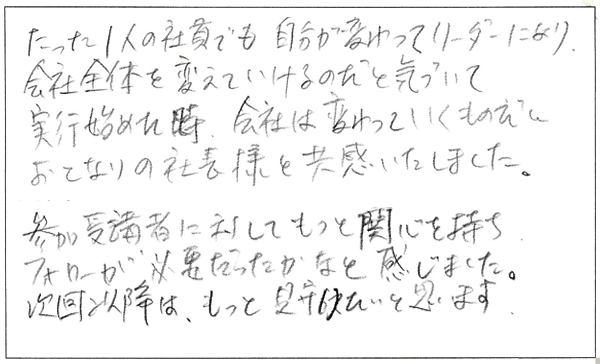 たった1人の社員でも 自分が変わってリーダーになり、
会社全体を変えていけるのだと気づいて
実行始めた時、会社は変わっていくものだと
おとなりの社長様と共感いたしました。
参加受講者に対してもっと関心を持ち、
フォローが必要だったかなと感じました。
次回以降は、もっと見守りたいと思います。